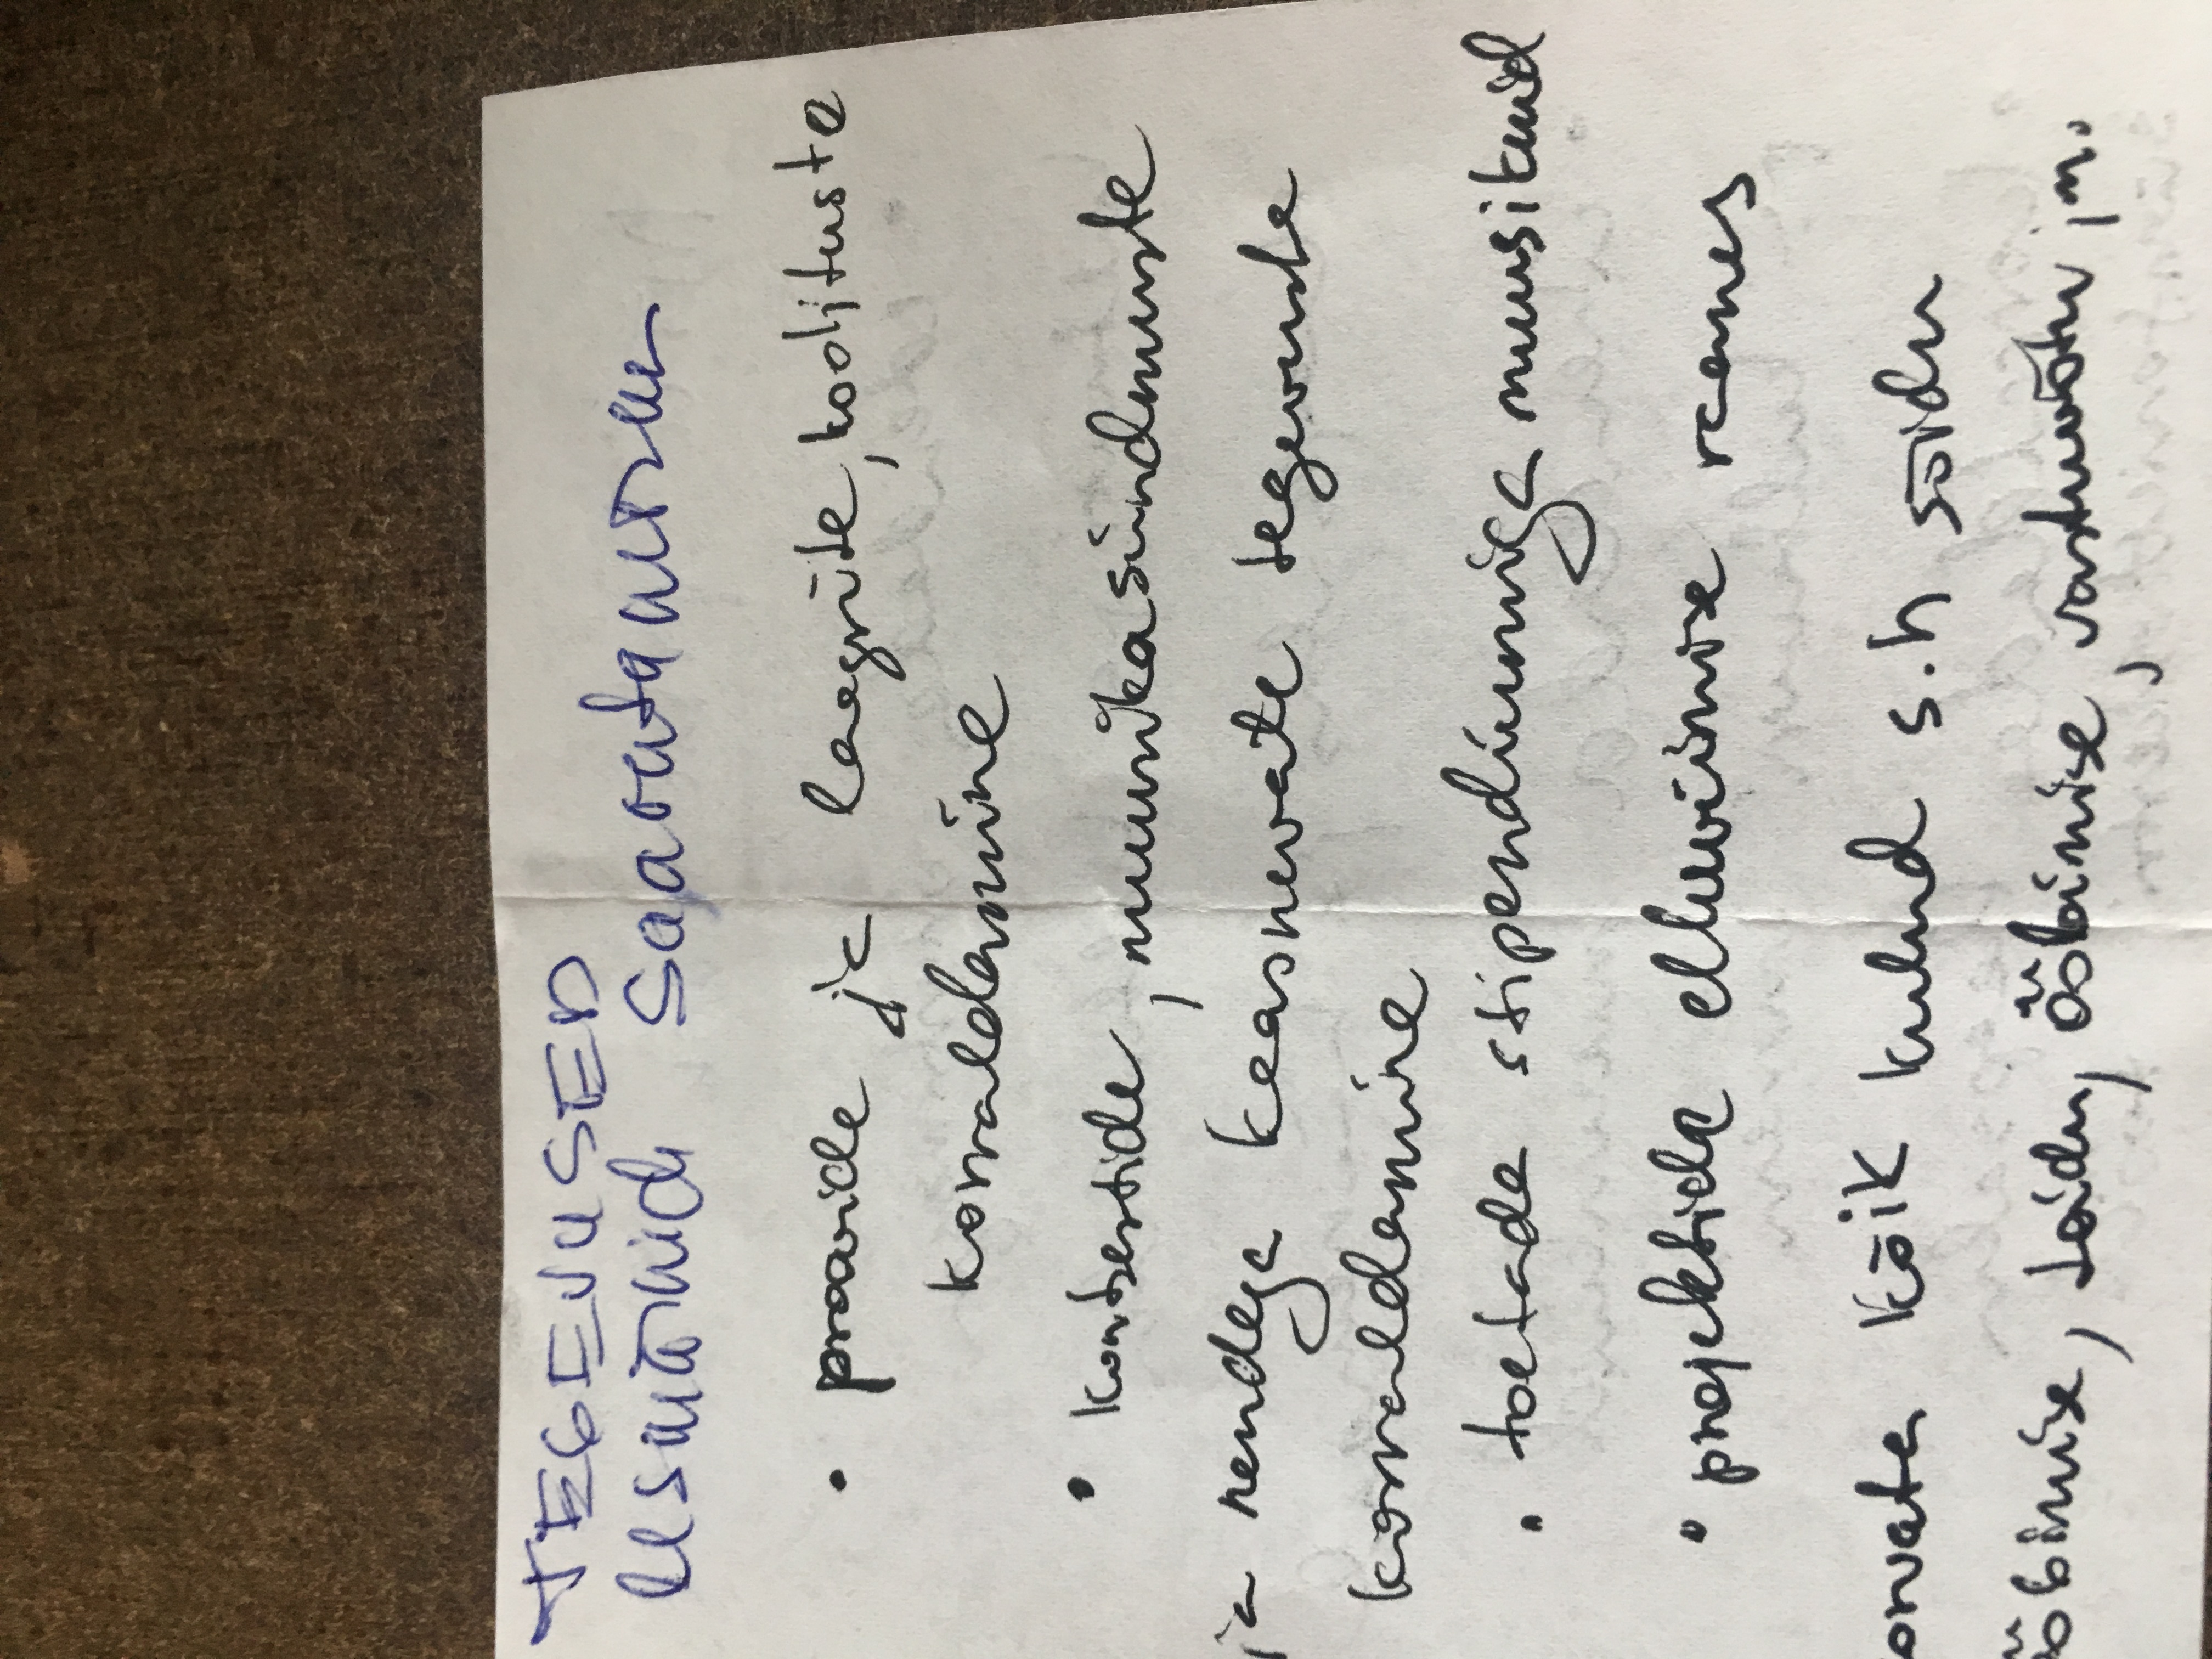 TEGEVUSED
eesmärkide saavutamiseks
• proovide ja laagrite, koolituste
korraldamine
• kontsertide, muusikasündmuste
ja nendega kaasnevate tegevuste
korraldamine
• toetada stipendiumiga muusikuid
• projektide elluviimise raames
kõik kulud s.h sõidu
ööbimise, toidu, ööbimise, vastuvõtu jm.